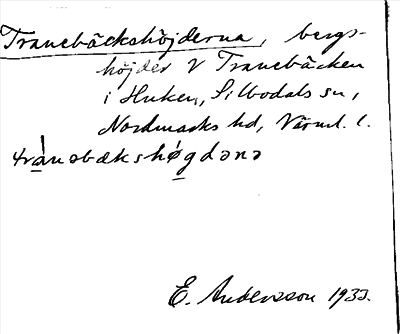 Tranebäckshöjderna, bergs-
höjder V Tranebäcken
i Huken, Silbodals sn,
Nordmarks hd, Värml. l.
tránəbækshǿgdənə
E. Andersson 1933.